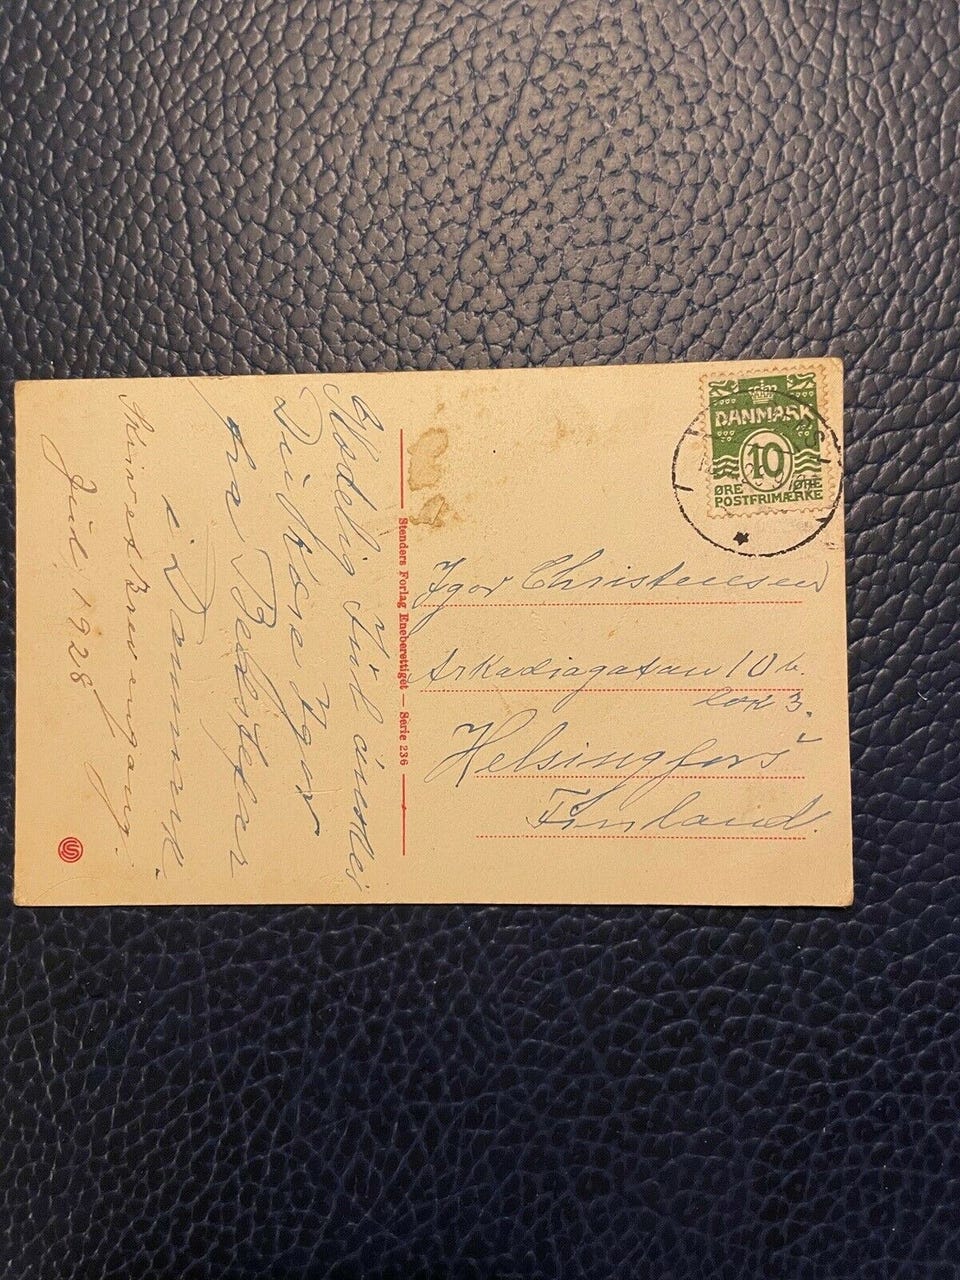 Glædelig Jul ønskes
Du kære Igor
fra Bedstefar
i Danmark.
Skriver Brev engang.
Jul. 1928
Stenders Forlag Eneberettiget — Serie 236
DANMARK
10
ØRE ØRE
POSTFRIMÆRKE
Igor Christensen
Arkadiagatan 10 b.
3.
Helsingfors
Finland.